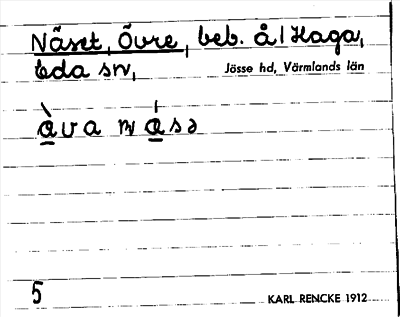 Näset, Övre, beb. å/ Haga,
Eda sn,
Jösse hd, Värmlands län
5
KARL RENCKE 1912